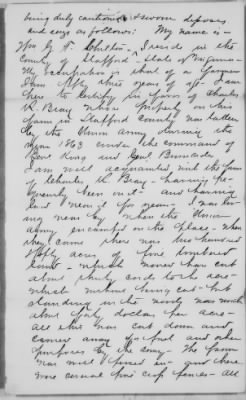 being duly cautioned & sworn deposes
and says as follows: My name is -
Wm G. F. Shelton - I reside in the
County of Stafford - State of Virginia -
My occupation is that of a farmer
I am fifty three years of age I am
here to testify in favor of Charles
R. Bray whose property on his
farm in Stafford county was taken
by the Union army during the
year 1863 under the command of
Genl King and Genl Burnside
I am well acquainted with the farm
of Charles R. Bray - having fre-
quently been on it - and having
lived near it for years - I was liv-
ing near by when the Union
army encamped on the place - When
they came there was two hundred
fifty acres of fine timbered
land - which would have cut
about thirty cords to the acre -
which
standing in the woods was worth
about forty dollars per acre -
All this was cut down and
carried away for fuel and other
purposes by the army - The farm
was well fenced in - and there
were several fine crop fences - All